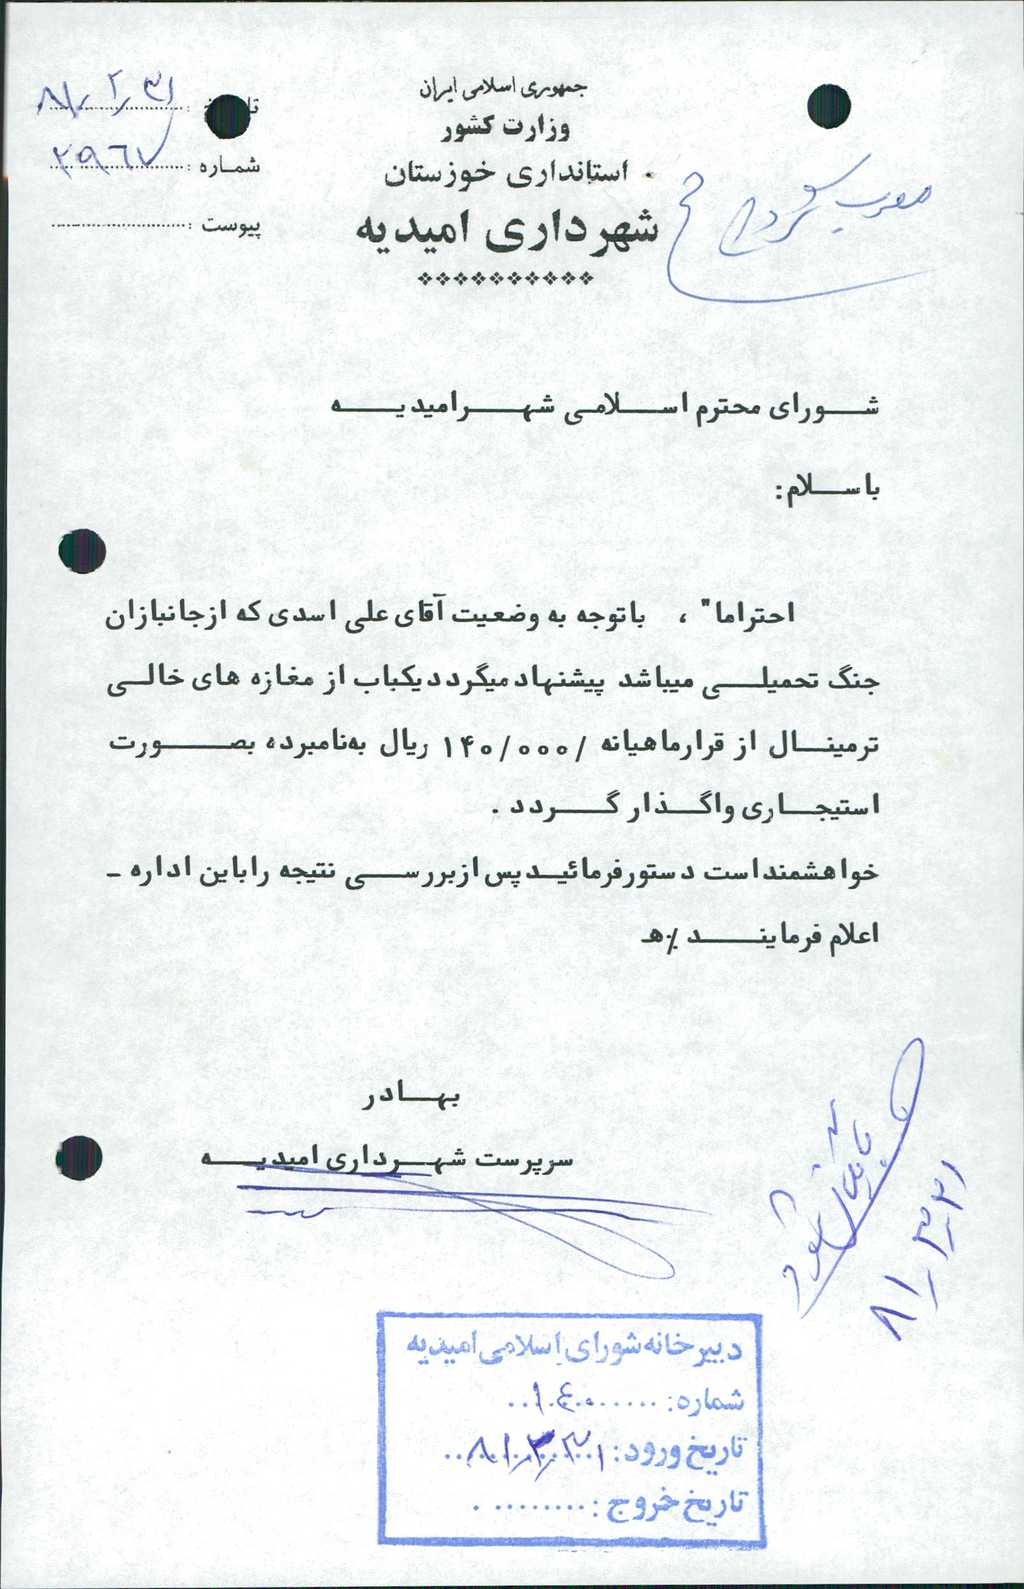 جمهوری اسلامی ایران
وزارت کشور
استانداری خوزستان
شهرداری امیدیه
تاریخ :
شماره : ۲۹۶۷
پیوست :
شورای محترم اسلامی شهر امیدیه
باسلام:
احتراما" ، باتوجه به وضعیت آقای علی اسدی که ازجانبازان
جنگ تحمیلی میباشد پیشنهاد میگردد یکباب از مغازه های خالی
ترمینال از قرار ماهیانه /۱۴۰/۰۰۰ ریال به نامبرده بصورت
استیجاری واگذار گردد .
خواهشمند است دستور فرمائید پس ازبررسی نتیجه را باین اداره -
اعلام فرمایند ٪ه
بهادر
سرپرست شهرداری امیدیه
بایگانی شود
۸۱/۳/۲۱
دبیرخانه شورای اسلامی امیدیه
شماره: ۱۴۰
تاریخ ورود:
تاریخ خروج: